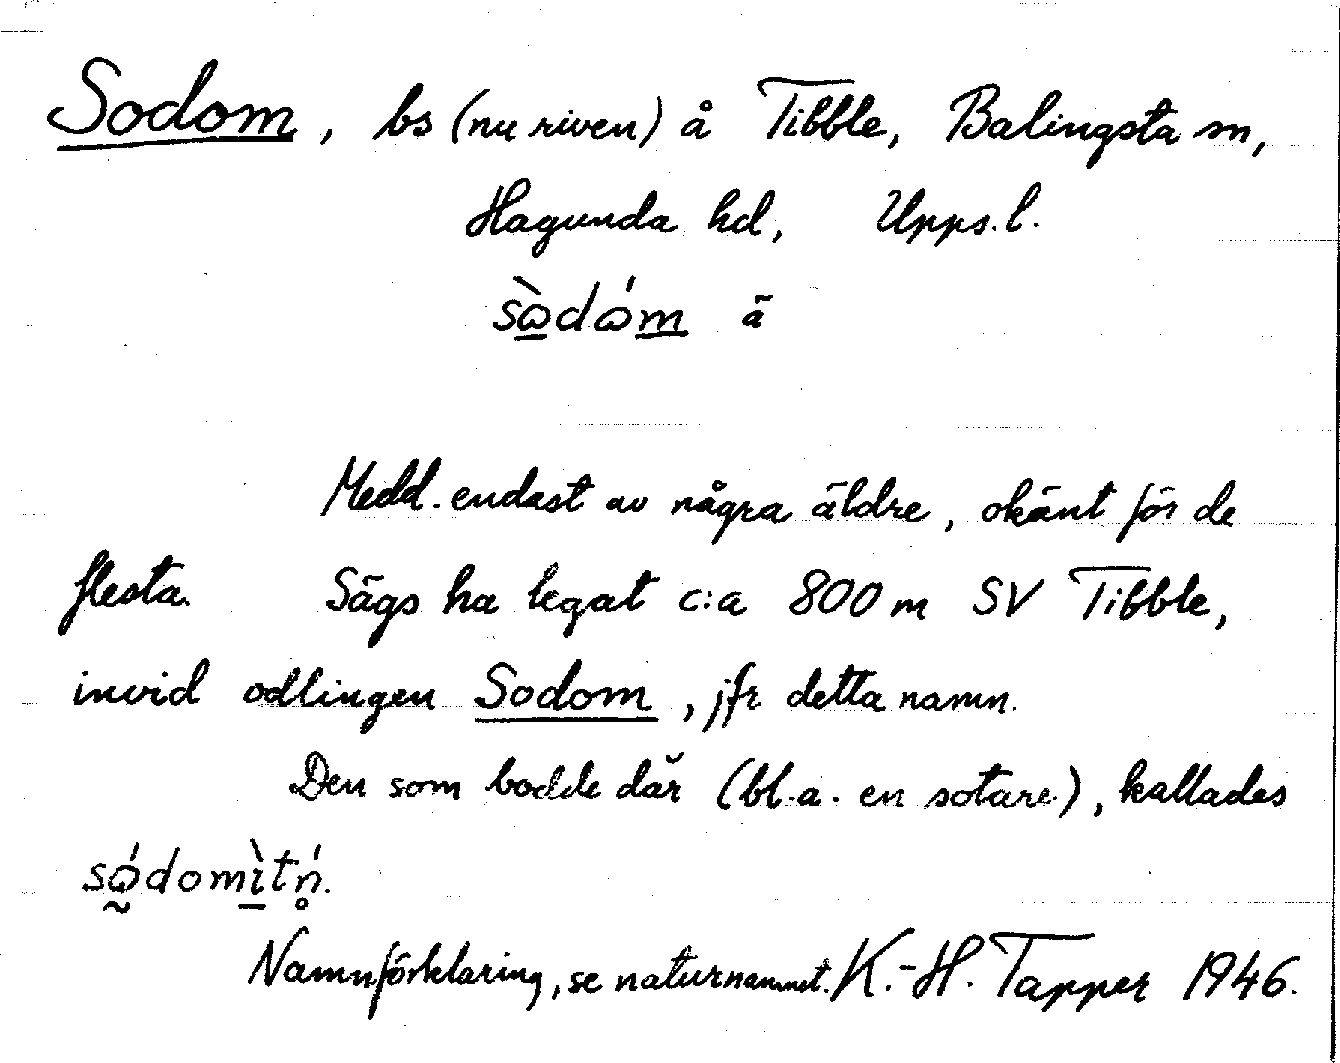 Sodom, bs (nu riven) å Tibble, Balingsta sn,
Hagunda hd, Upps. l.
sὼ̠dώm̠ ä
Medd. endast av några äldre, okänt för de
flesta. Sägs ha legat c:a 800 m SV Tibble,
invid odlingen Sodom, jfr detta namn.
Den som bodde där (bl.a. en sotare), kallades
sώ̰domı̠̀tń̥.
Namnförklaring, se naturnamnet. K.-H. Tapper 1946.